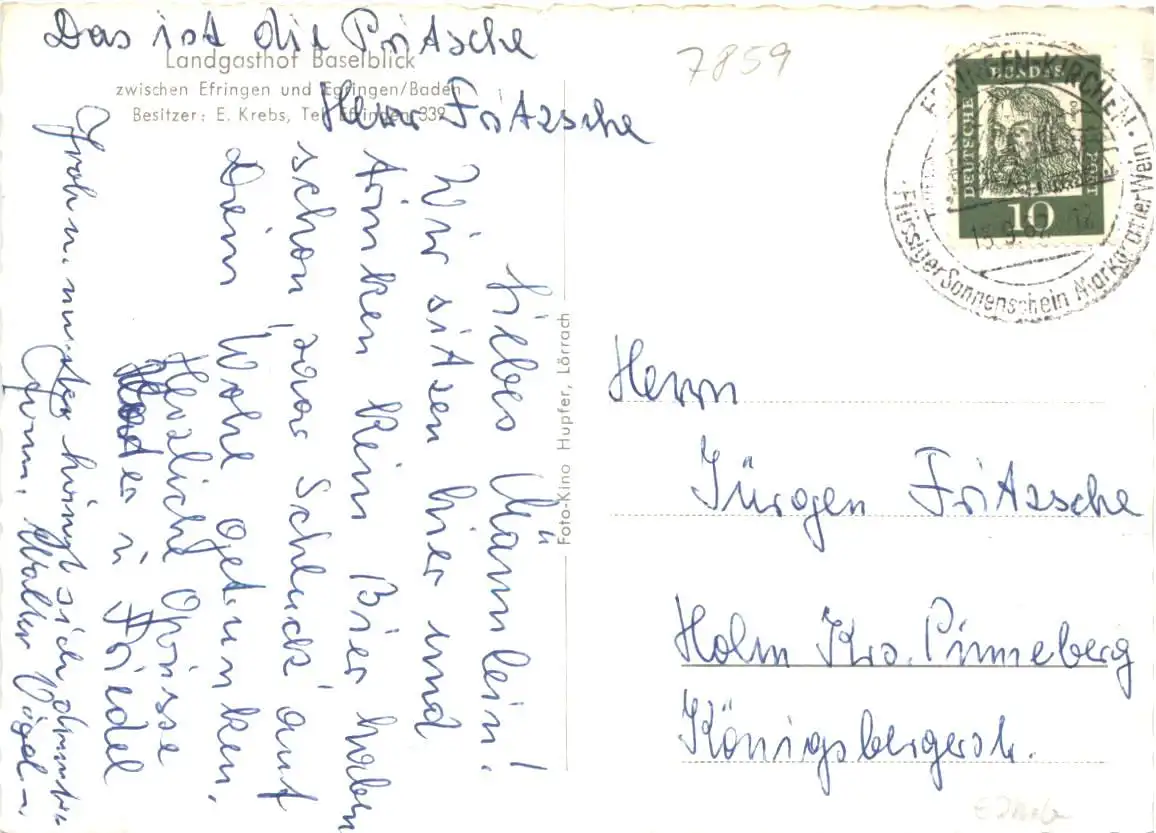 Das ist die Pritsche
Landgasthof Baselblick
zwischen Efringen und Egringen/Baden
Besitzer: E. Krebs, Tel. Efringen 339
Herr Fritzsche
7859
Liebes Männlein!
Wir sitzen hier und
trinken kein Bier haben
schon 'zwar Schluck' auf
Dein Wohl getrunken.
Herzliche Grüsse
u. Friedel
Froh u. munter hinzu sich
Walter
Foto-Kino Hupfer, Lörrach
DEUTSCHE BUNDESPOST
10
EFRINGEN-KIRCHEN
Flüssiger Sonnenschein Markgräfler Wein
Herrn
Jürgen Fritzsche
Holm Krs. Pinneberg
Königsbergerstr.